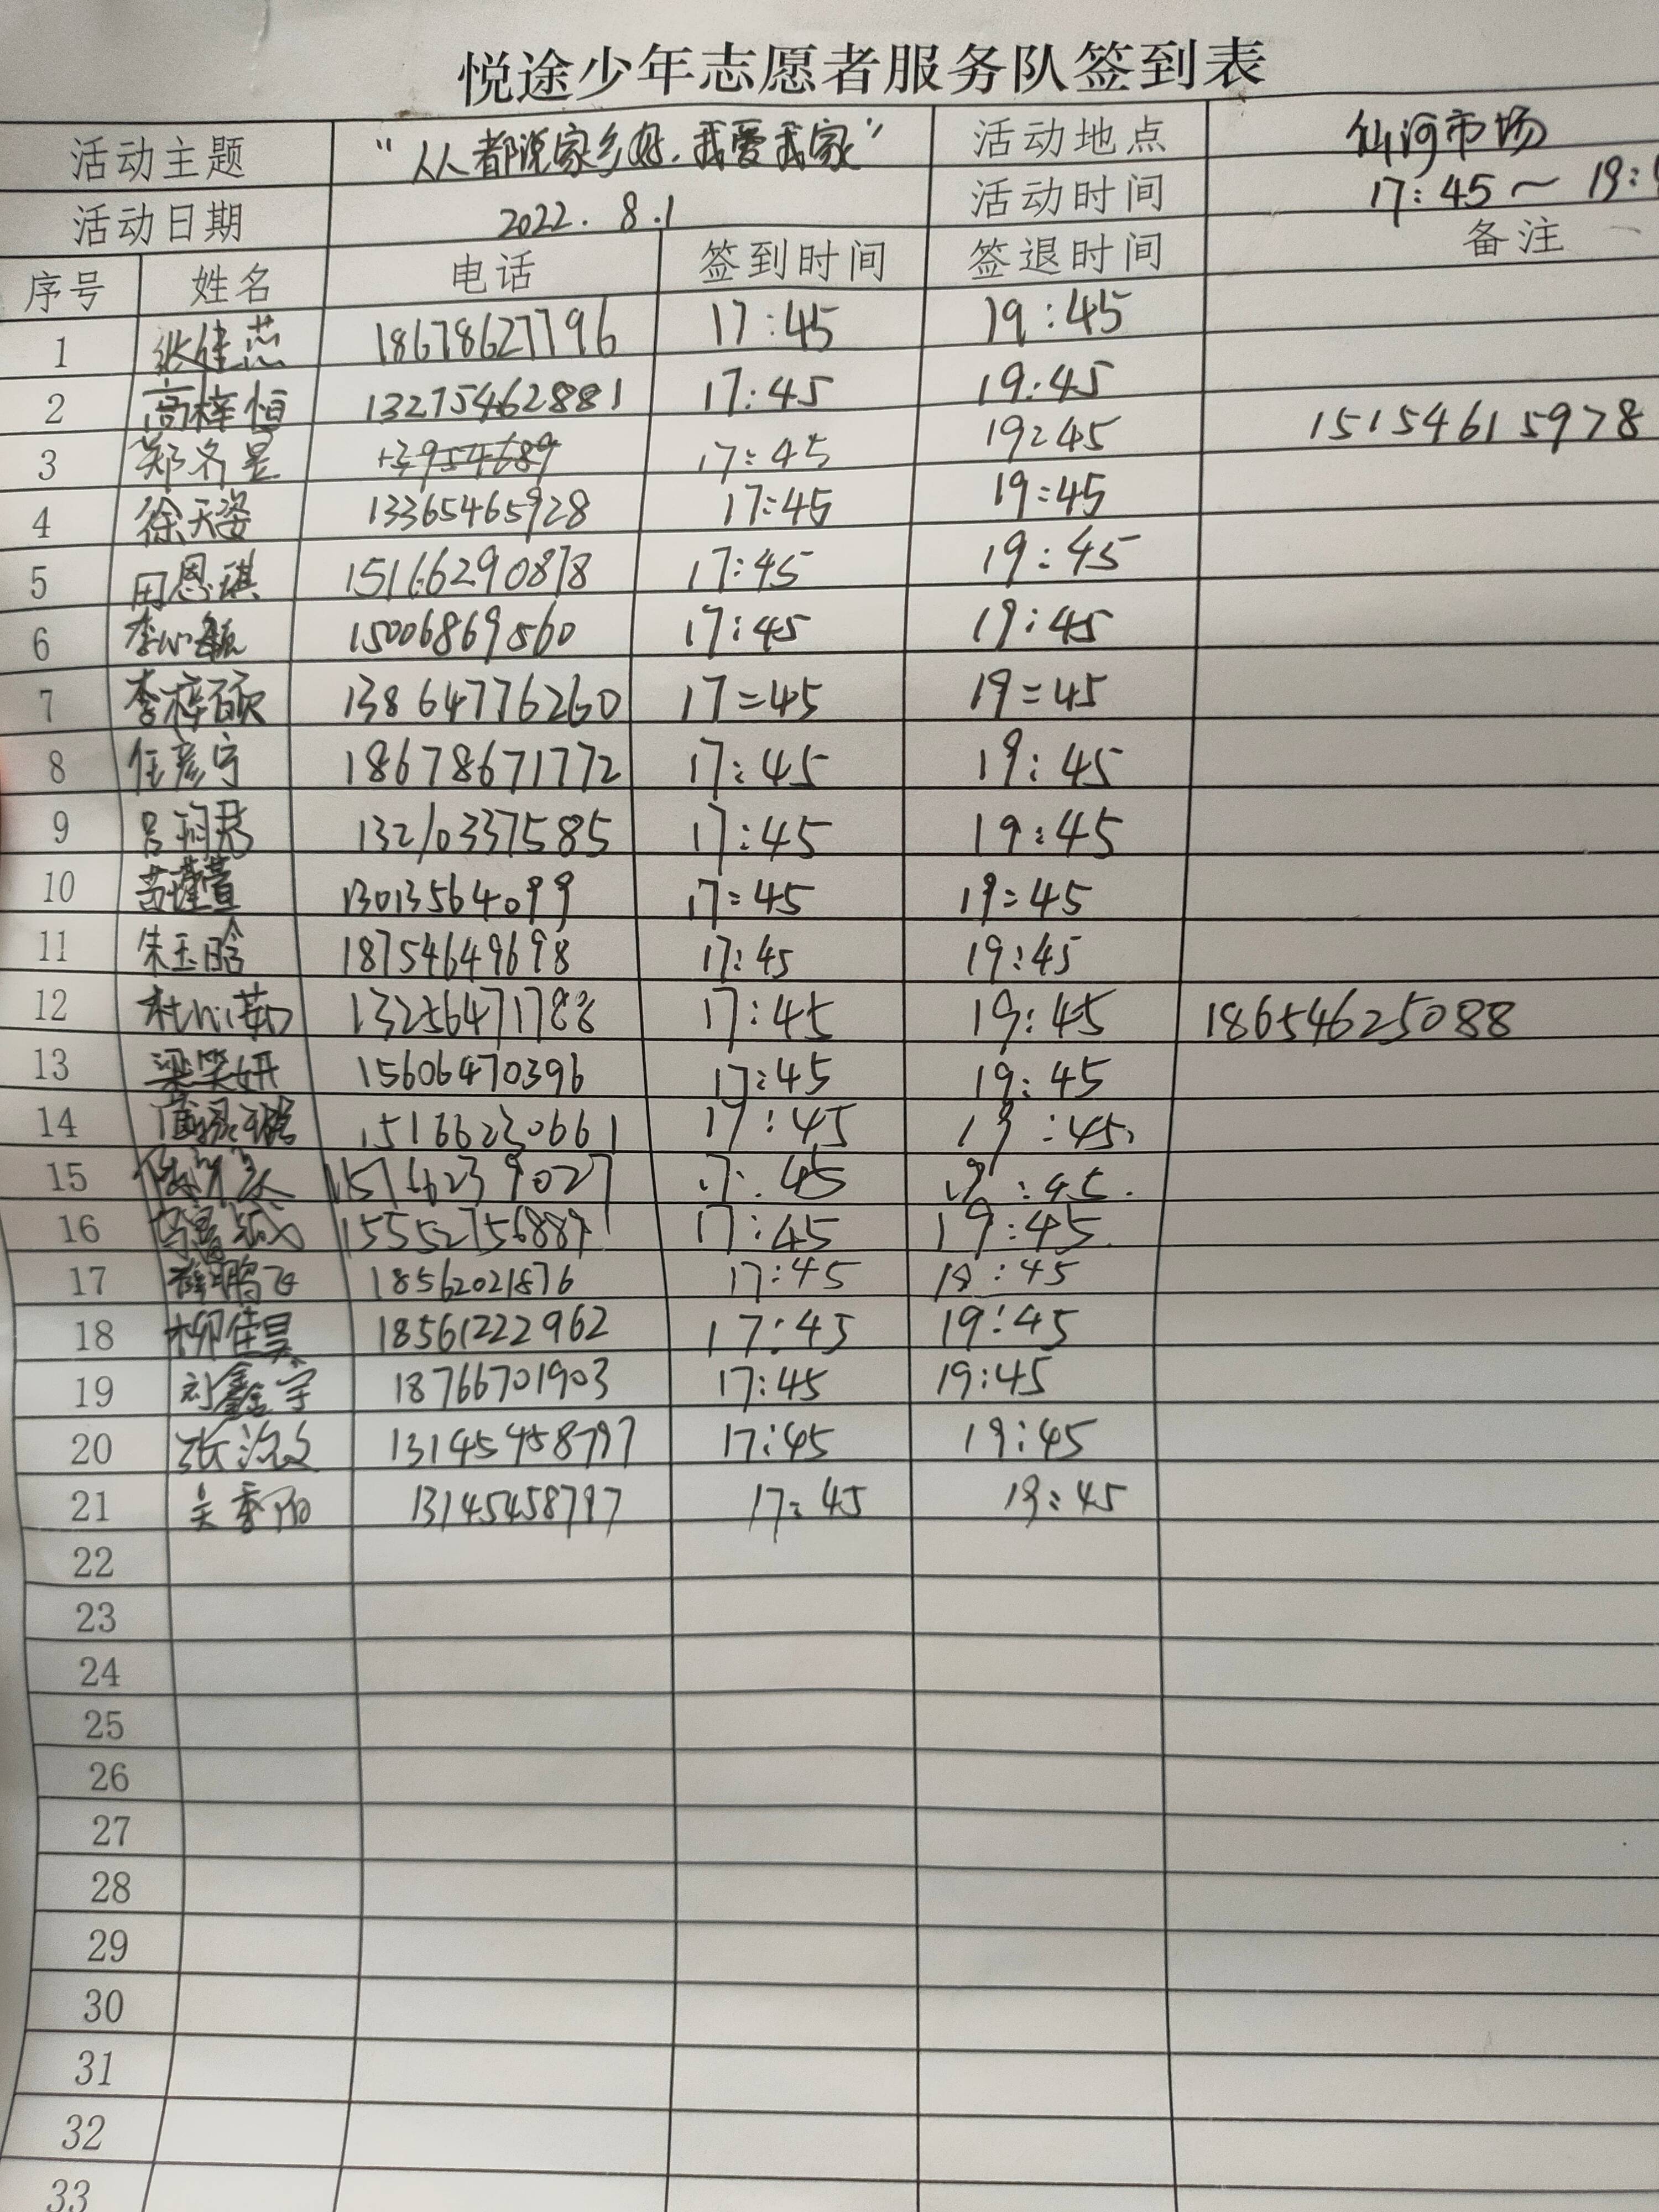 悦途少年志愿者服务队签到表
活动主题 “人人都说家乡好,我爱我家” 活动地点 仙河市场
活动日期 2022.8.1 活动时间 17:45~19:
序号 姓名 电话 签到时间 签退时间 备注
1 张佳芯 18678627796 17:45 19:45
2 高梓恒 132754628881 17:45 19:45
3 郑名昱 17:45 19:45 15154615978
4 徐天姿 13365465928 17:45 19:45
5 田恩琪 15166290878 17:45 19:45
6 李心 15006869560 17:45 19:45
7 李梓硕 13864776260 17:45 19:45
8 任彦宇 18678671772 17:45 19:45
9 吕 13210337585 17:45 19:45
10 苗瑾萱 13013564099 17:45 19:45
11 朱玉晗 18754649698 17:45 19:45
12 杜心茹 13256471788 17:45 19:45 18654625088
13 梁笑妍 15606470396 17:45 19:45
14 15166230661 17:45 19:45
15 17:45 19:45
16 17:45 19:45
17 薛鹏飞 18562021876 17:45 19:45
18 柳佳昊 18561222962 17:45 19:45
19 刘鑫宇 18766701903 17:45 19:45
20 张 13145458797 17:45 19:45
21 关季阳 13145458797 17:45 19:45
22
23
24
25
26
27
28
29
30
31
32
33